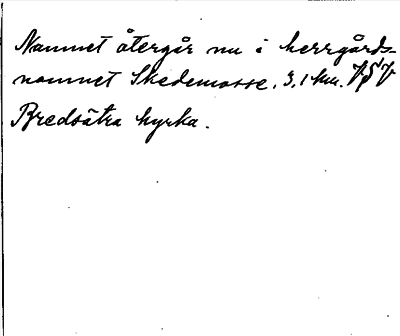 Namnet återgår nu i herrgårds-
namnet Skedemosse, 3,1 km. VSV
Bredsätra kyrka.